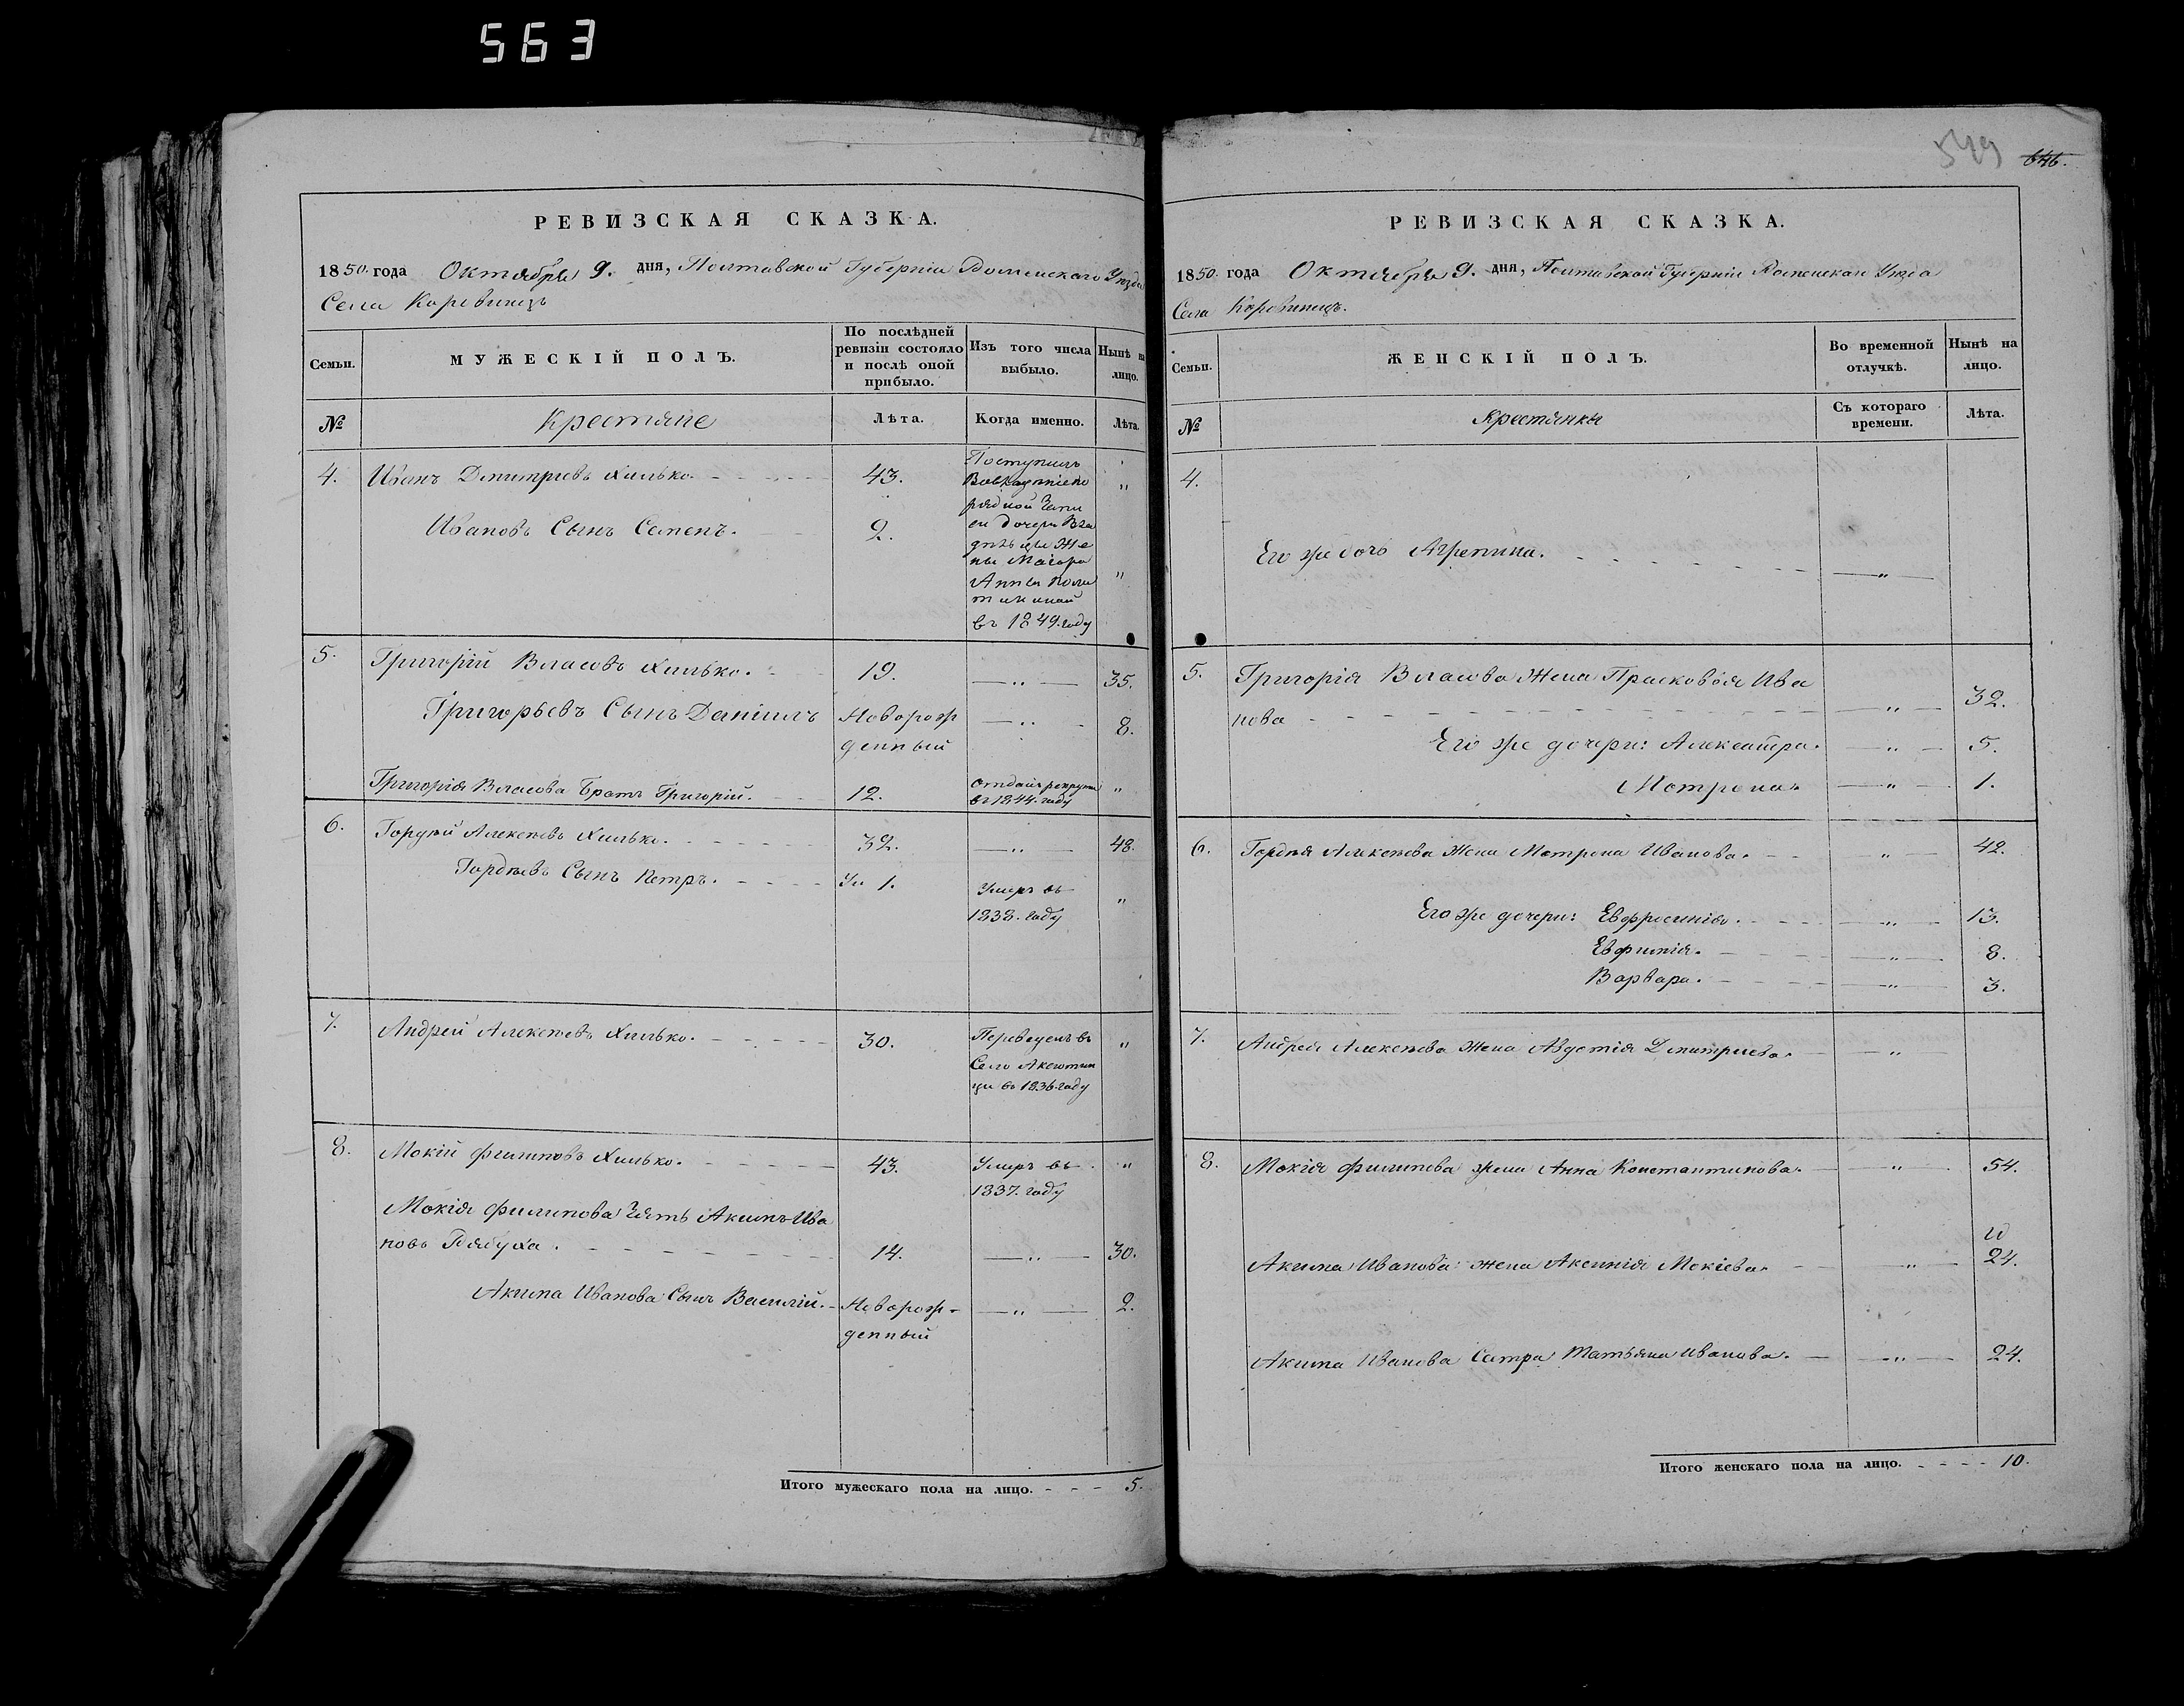 563
РЕВИЗСКАЯ СКАЗКА.
1850. года Октября 9. дня, Полтавской Губерніи Роменскаго Уезда
Села Коровинецъ
Семьи. МУЖЕСКІЙ ПОЛЪ. По послѣдней ревизіи состояло и послѣ оной прибыло. Изъ того числа выбыло. Нынѣ на лицо.
№ Крестяне Лѣта. Когда именно. Лѣта.
4. Иванъ Дмитріевъ Хилько. 43. Поступилъ
"
рядной Запи
Ивановъ Сынъ Семенъ. 2. си дочери Вла
дѣлицы Же
ны Маіора
Анны "
въ 1849. году
5. Григорій Власовъ Хилько. 19. — " — 35.
Григорьевъ Сынъ Даніилъ Новорож — " — 8.
денный
Григорія Власова Братъ Григорій. 12. Отданъ рекруты "
въ 1844. году
6. Гордѣй Алексѣевъ Хилько. 32. — " — 48.
Гордѣевъ Сынъ Петръ. 1. Умеръ въ "
1838. году
7. Андрей Алексѣевъ Хилько. 30. Переведенъ въ "
Село Аксютин
цы въ 1836. году
8. Мокій Филиповъ Хилько. 43. Умеръ въ "
1837. году
Мокія Филипова Зять Акимъ Ива
новъ Рябуха. 14. — " — 30.
Акима Иванова Сынъ Василій. Новорож- — " — 2.
денный
Итого мужескаго пола на лицо. 5.
549 646.
РЕВИЗСКАЯ СКАЗКА.
1850. года Октября 9. дня, Полтавской Губерніи Роменскаго Уезда
Села Коровинецъ.
Семьи. ЖЕНСКІЙ ПОЛЪ. Во временной отлучкѣ. Нынѣ на лицо.
№ Крестянки Съ котораго времени. Лѣта.
4.
Его же дочь Агрепина. — " —
5. Григорія Власова Жена Прасковія Ива
нова — " — 32.
Его же дочери: Александра. — " — 5.
Мотрона. — " — 1.
6. Гордѣя Алексѣева Жена Мотрона Иванова. " 42.
Его же дочери: Евфросинія. — " — 13.
Евфимія. — " — 8.
Варвара. — " — 3.
7. Андрея Алексѣева Жена Авдотія Дмитриева. — " —
8. Мокія Филипова жена Анна Константинова. — " — 54.
Акима Иванова жена Аксинія Мокіева. — " — 24.
Акима Иванова Сестра Татьяна Иванова. — " — 24.
Итого женскаго пола на лицо. 10.